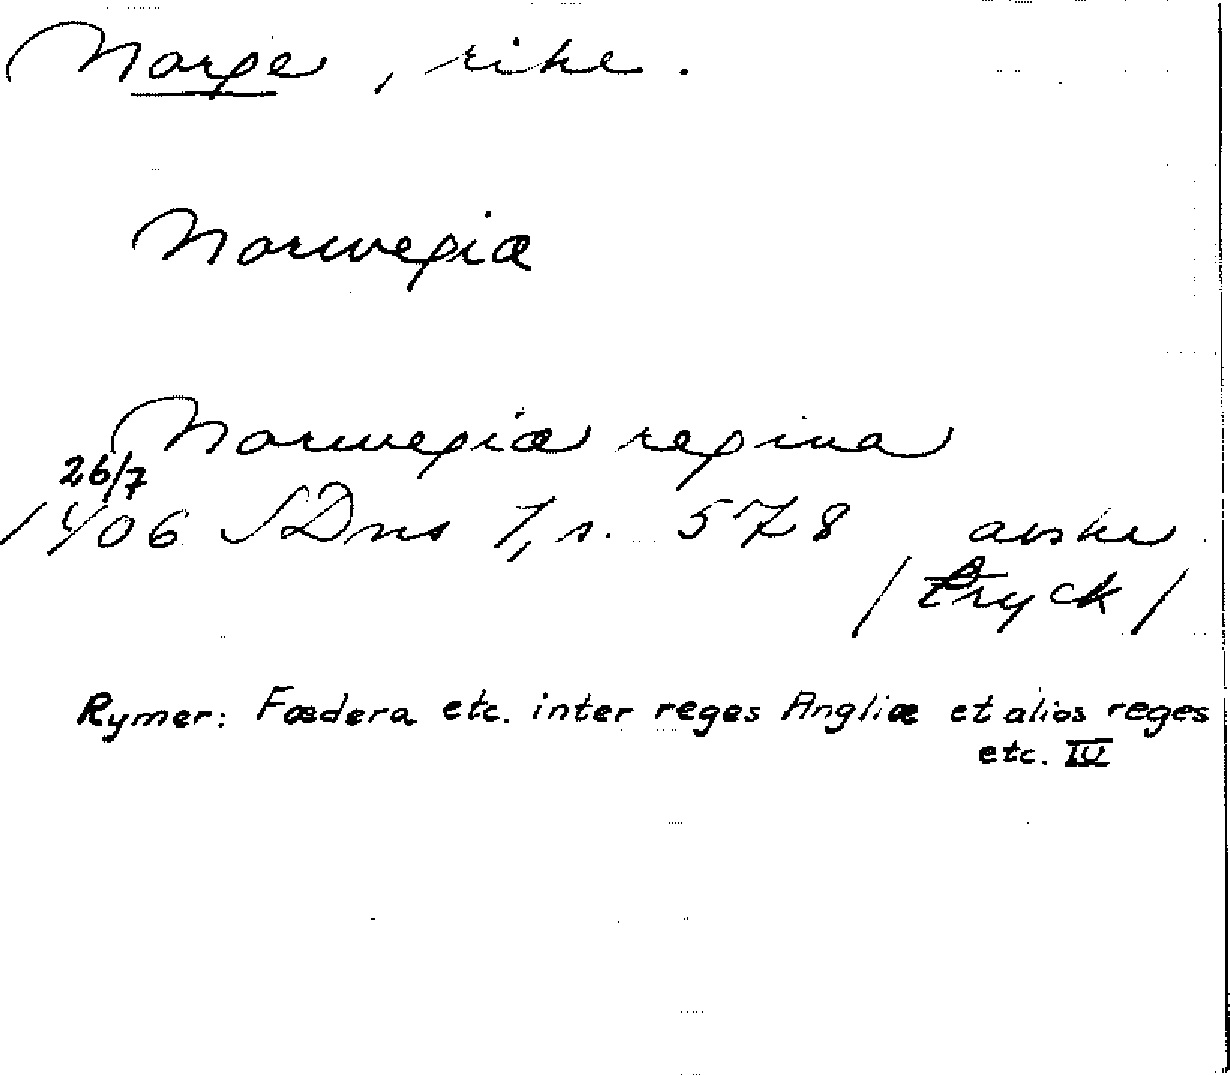 Norge, rike.
Norwegiæ
Norwegiæ regina
26/7
1406 SDns 1, s. 578 avskr
/tryck/
Rymer: Fœdera etc. inter reges Angliæ et alios reges
etc. IV